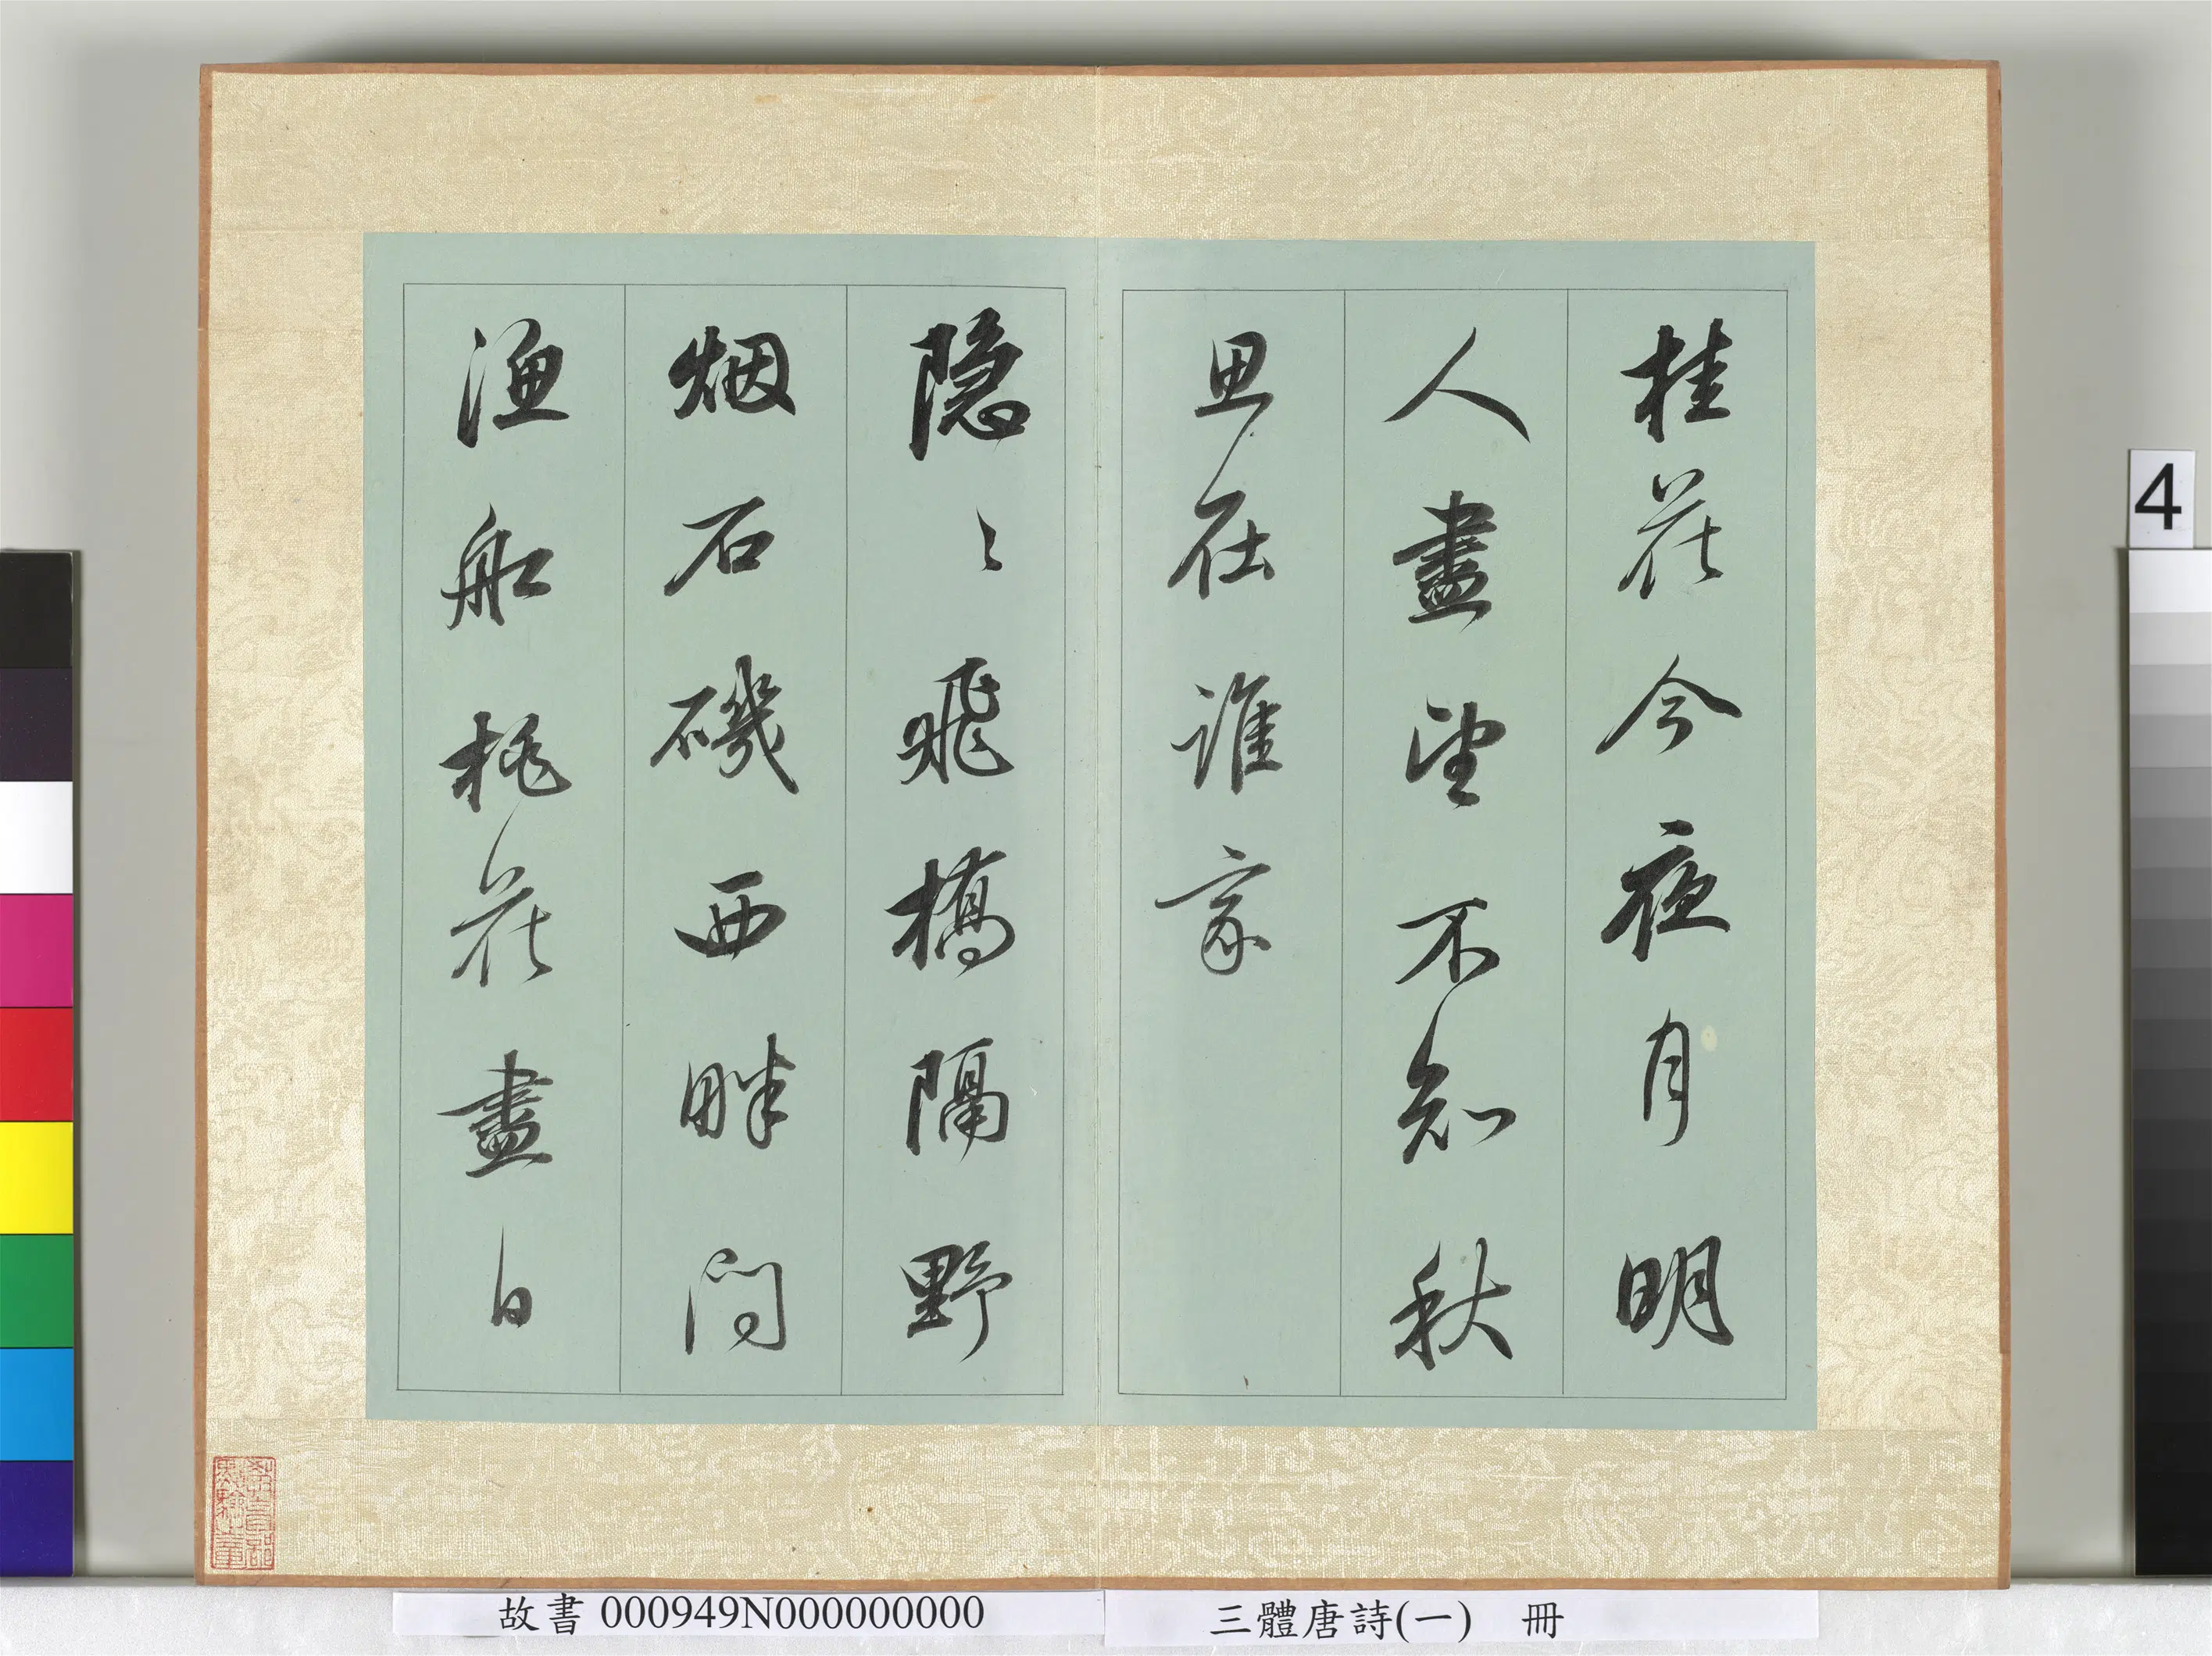 桂花今夜月明
人盡望不知秋
思在誰家
隠〻飛橋隔野
烟石磯西畔問
漁船桃花盡日
4
故書 000949N000000000
三體唐詩(一) 冊